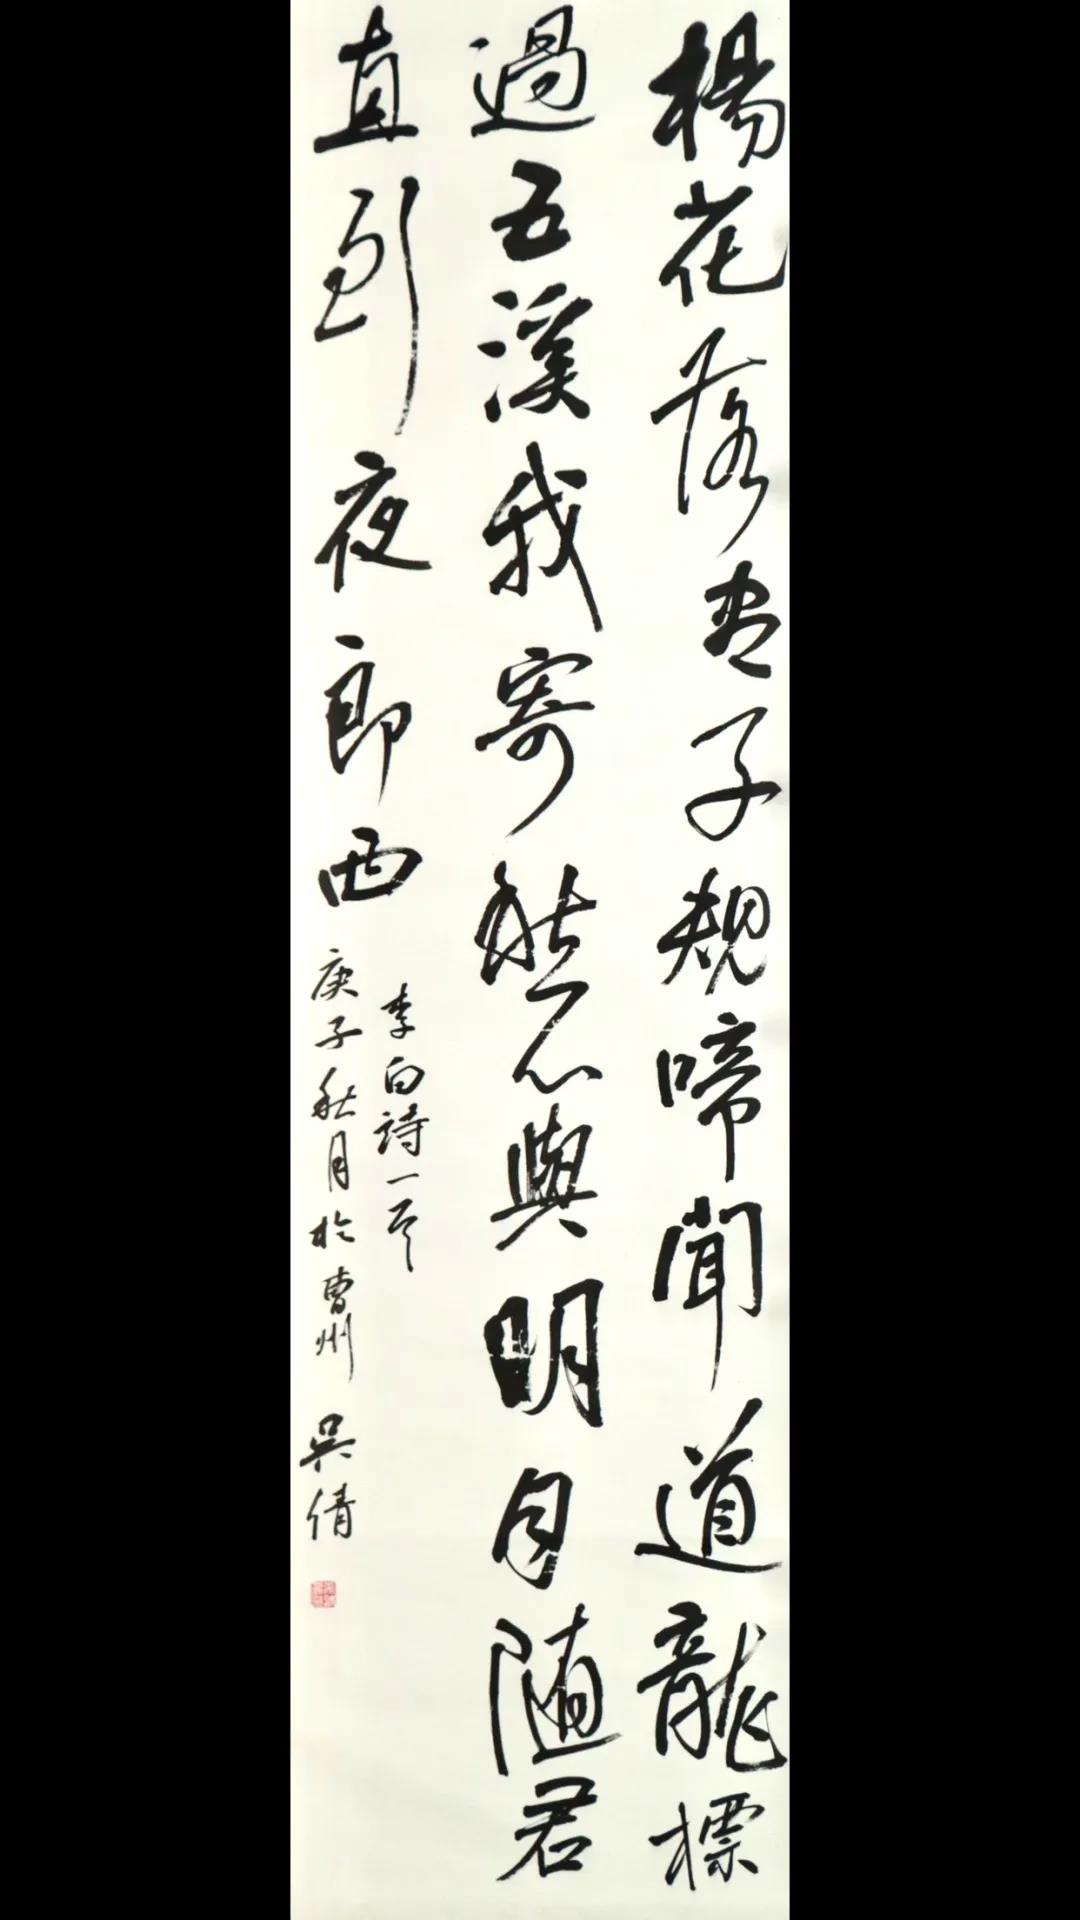 楊花落盡子規啼聞道龍標
過五溪我寄愁心與明月随君
直到夜郎西
李白詩一首
庚子秋月於曹州 吳倩